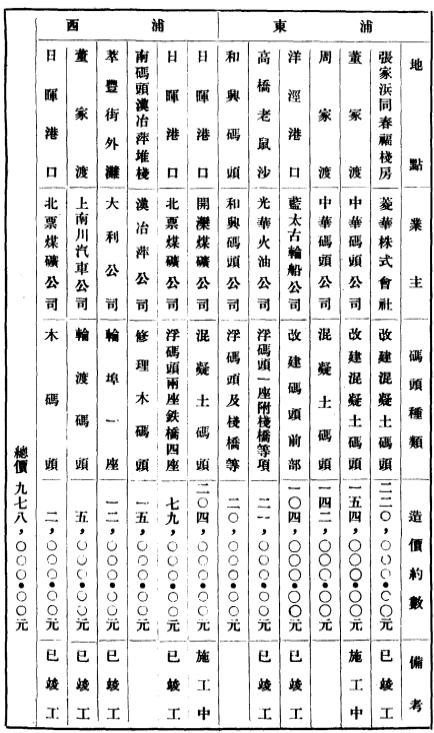 地點 業主 碼頭種類 造價約數 備考
浦東
張家浜同春福棧房 菱華株式會社 改建混凝土碼頭 二二〇,〇〇〇.〇〇元 已竣工
董家渡 中華碼頭公司 改建混凝土碼頭 一五四,〇〇〇.〇〇元 施工中
周家渡 中華碼頭公司 混凝土碼頭 一四二,〇〇〇.〇〇元
洋涇港口 藍太古輪船公司 改建碼頭前部 一〇四,〇〇〇.〇〇元 已竣工
高橋老鼠沙 光華火油公司 浮碼頭一座附棧橋等項 二一,〇〇〇.〇〇元 已竣工
和興碼頭 和興碼頭公司 浮碼頭及棧橋等 二〇,〇〇〇.〇〇元
浦西
日暉港口 開灤煤礦公司 混凝土碼頭 二〇四,〇〇〇.〇〇元 施工中
日暉港口 北票煤礦公司 浮碼頭兩座鉄橋四座 七九,〇〇〇.〇〇元 已竣工
南碼頭漢冶萍堆棧 漢冶萍公司 修理木碼頭 一五,〇〇〇.〇〇元
萃豐街外灘 大利公司 輪埠一座 一二,〇〇〇.〇〇元 已竣工
董家渡 上南川汽車公司 輪渡碼頭 五,〇〇〇.〇〇元 已竣工
日暉港口 北票煤礦公司 木碼頭 二,〇〇〇.〇〇元 已竣工
總價九七八,〇〇〇.〇〇元